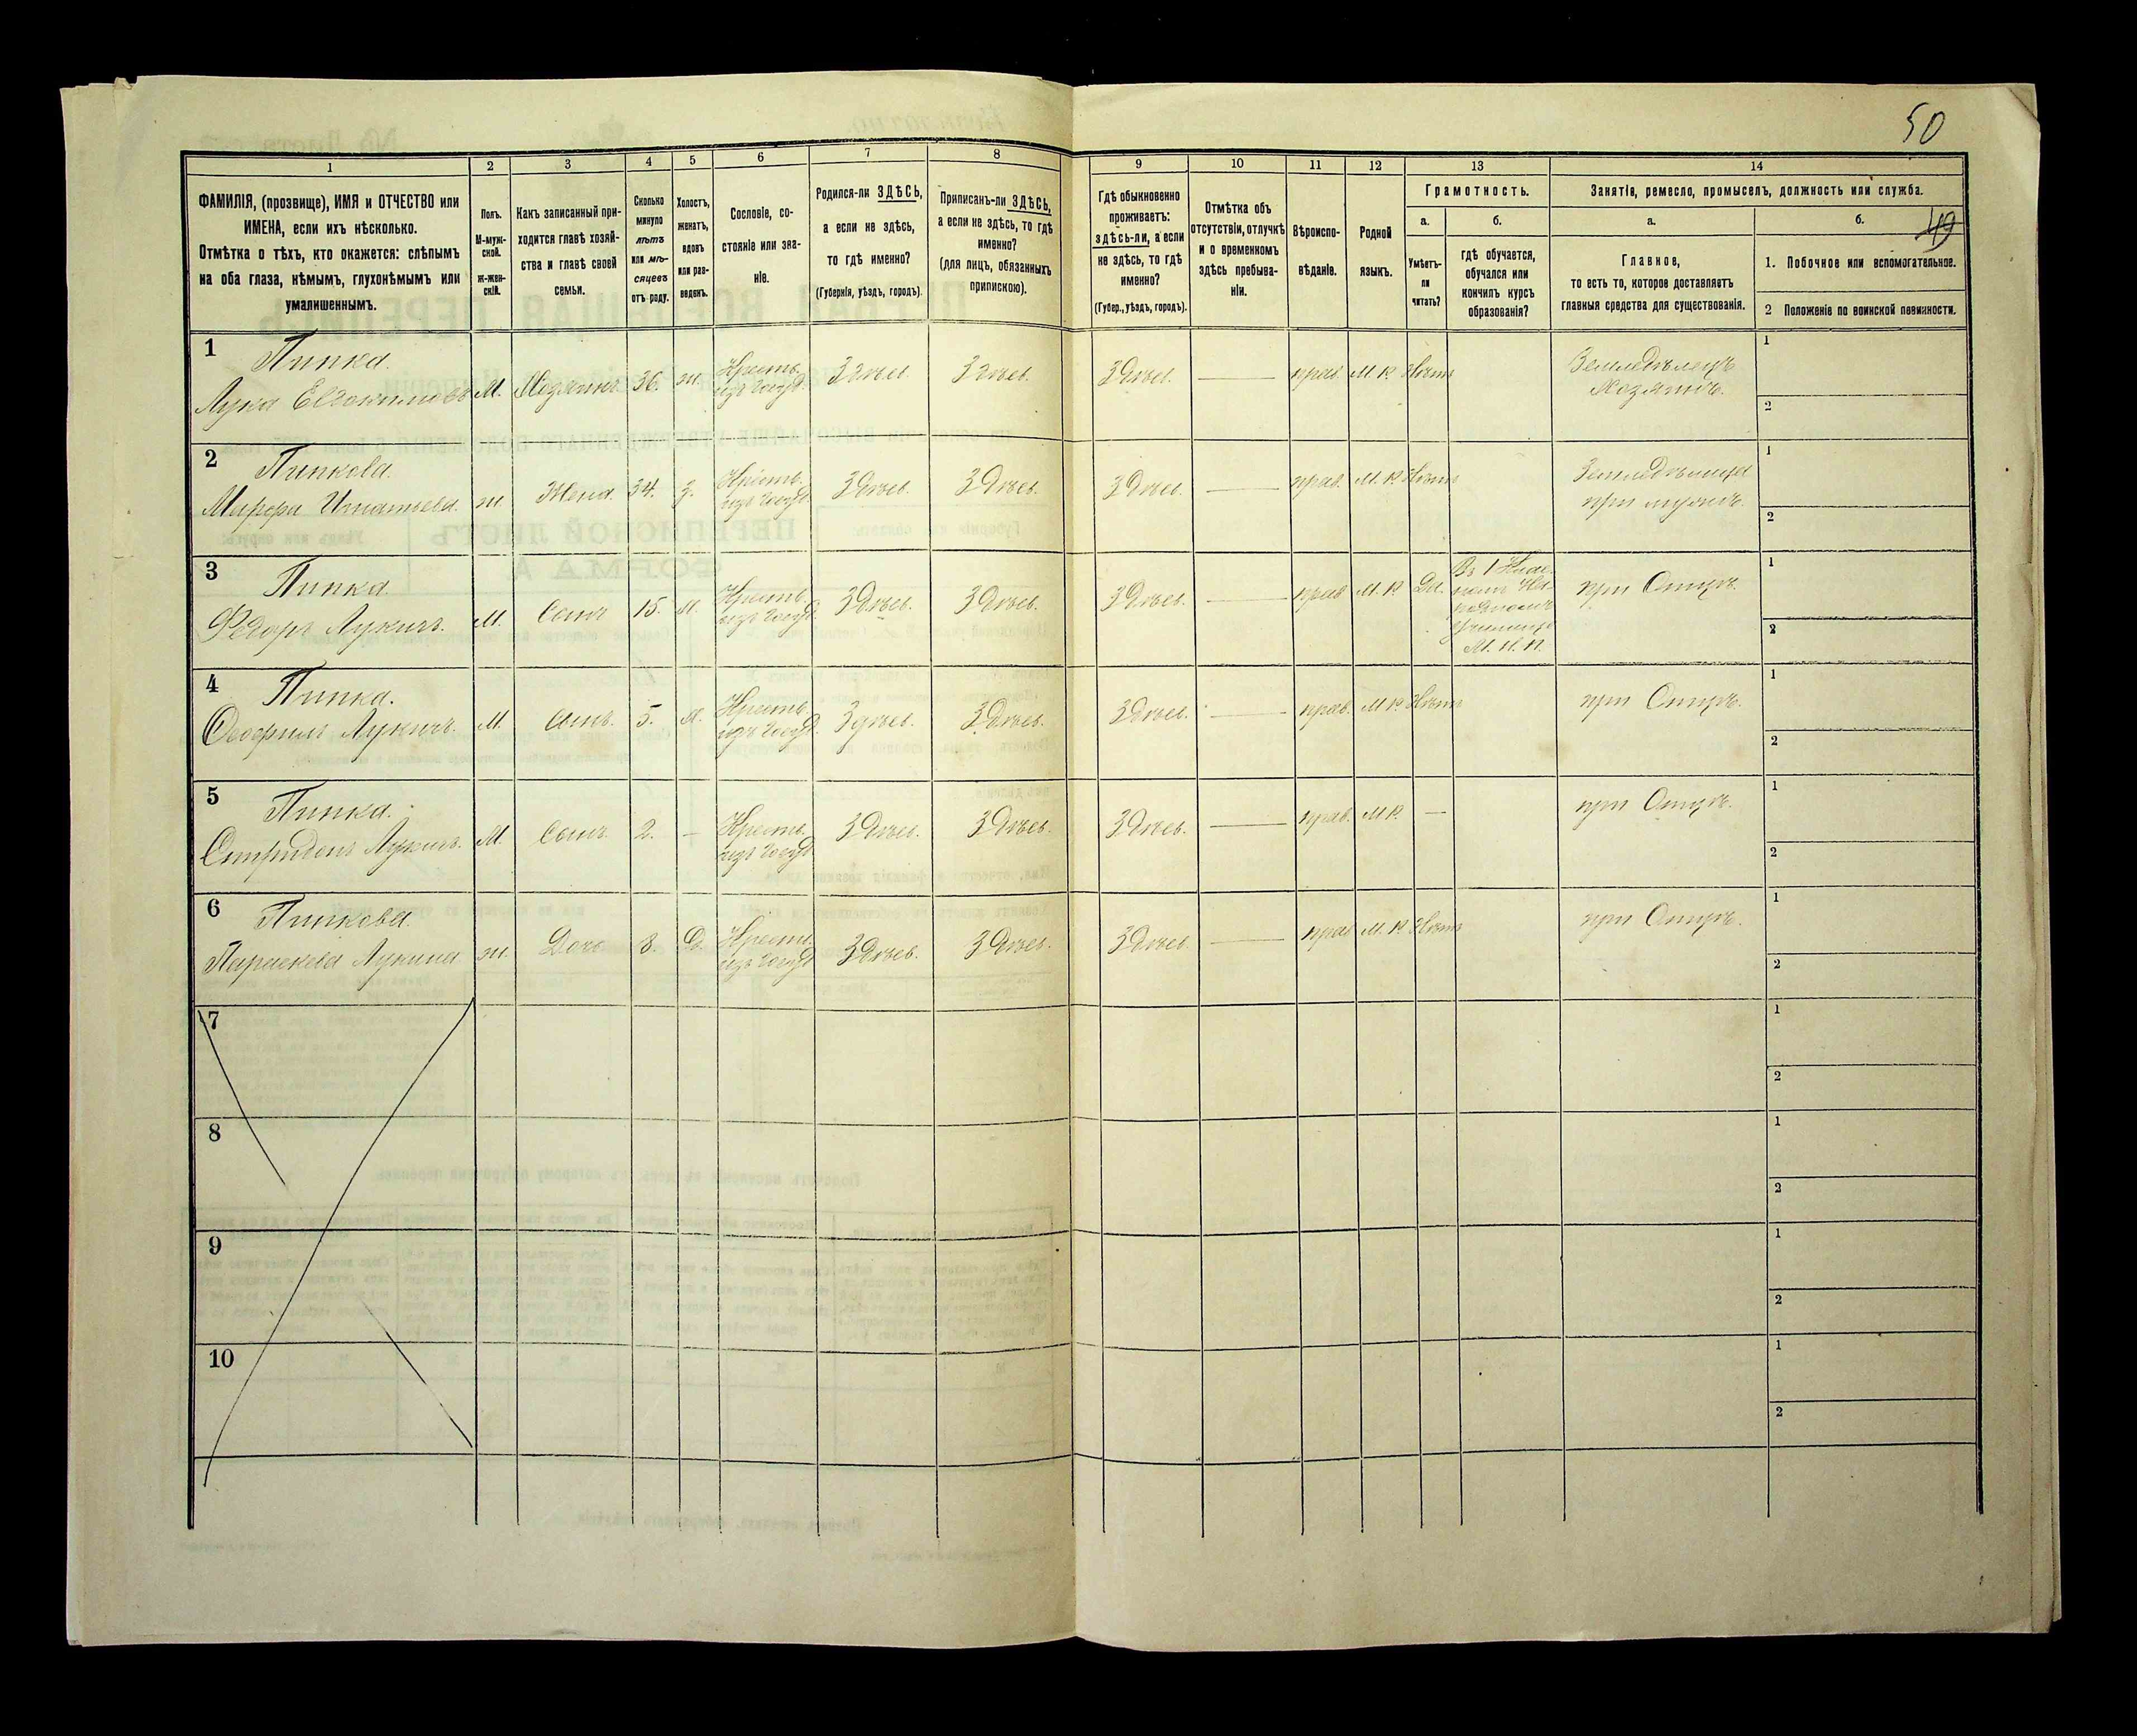 50
49
1 2 3 4 5 6 7 8 9 10 11 12 13 14
ФАМИЛІЯ, (прозвище), ИМЯ и ОТЧЕСТВО или
ИМЕНА, если ихъ нѣсколько.
Отмѣтка о тѣхъ, кто окажется: слѣпымъ
на оба глаза, нѣмымъ, глухонѣмымъ или
умалишеннымъ.
Полъ.
М-муж-
ской.
ж-жен-
скій.
Какъ записанный при-
ходится главѣ хозяй-
ства и главѣ своей
семьи.
Сколько
минуло
лѣтъ
или мѣ-
сяцевъ
отъ роду.
Холостъ,
женатъ,
вдовъ
или раз-
веденъ.
Сословіе, со-
стояніе или зва-
ніе.
Родился-ли ЗДѢСЬ,
а если не здѣсь,
то гдѣ именно?
(Губернія, уѣздъ, городъ).
Приписанъ-ли ЗДѢСЬ,
а если не здѣсь, то гдѣ
именно?
(для лицъ, обязанныхъ
припискою).
Гдѣ обыкновенно
проживаетъ:
здѣсь-ли, а если
не здѣсь, то гдѣ
именно?
(Губер., уѣздъ, городъ).
Отмѣтка объ
отсутствіи, отлучкѣ
и о временномъ
здѣсь пребыва-
ніи.
Вѣроиспо-
вѣданіе.
Родной
языкъ.
Грамотность.
а.
Умѣетъ-
ли
читать?
б.
гдѣ обучается,
обучался или
кончилъ курсъ
образованія?
Занятіе, ремесло, промыселъ, должность или служба.
а.
Главное,
то есть то, которое доставляетъ
главныя средства для существованія.
б.
1. Побочное или вспомогательное.
2 Положеніе по воинской повинности.
1 Пипка.
Лука Евдокимовъ М. Хозяинъ 36. ж. Крестъ. изъ Госуд. Здѣсь. Здѣсь. Здѣсь. — прав. М. Р. Нѣтъ Земледѣлецъ
Хозяинъ.
1
2
2 Пипкова.
Марфа Игнатьева. ж. Жена. 34. з. Крестъ. изъ Госуд. Здѣсь. Здѣсь. Здѣсь. — прав. М. Р. Нѣтъ Земледѣлица
при мужѣ.
1
2
3 Пипка.
Федоръ Лукичъ. М. Сынъ 15. х. Крестъ. изъ Госуд. Здѣсь. Здѣсь. Здѣсь. — прав. М. Р. Да.
училищѣ
М. Н. П.
при Отцѣ.
1
2
4 Пипка.
Феофилъ Лукичъ. М. Сынъ. 5. х. Крестъ. изъ Госуд. Здѣсь. Здѣсь. Здѣсь. — прав. М. Р. Нѣтъ при Отцѣ.
1
2
5 Пипка.
Спиридонъ Лукичъ. М. Сынъ. 2. — Крестъ. изъ Госуд. Здѣсь. Здѣсь. Здѣсь. — прав. М. Р. — при Отцѣ.
1
2
6 Пипкова.
Параскева Лукина ж. Дочь 8. Д. Крестъ. изъ Госуд. Здѣсь. Здѣсь. Здѣсь. — прав. М. Р. Нѣтъ при Отцѣ.
1
2
7
1
2
8
1
2
9
1
2
10
1
2